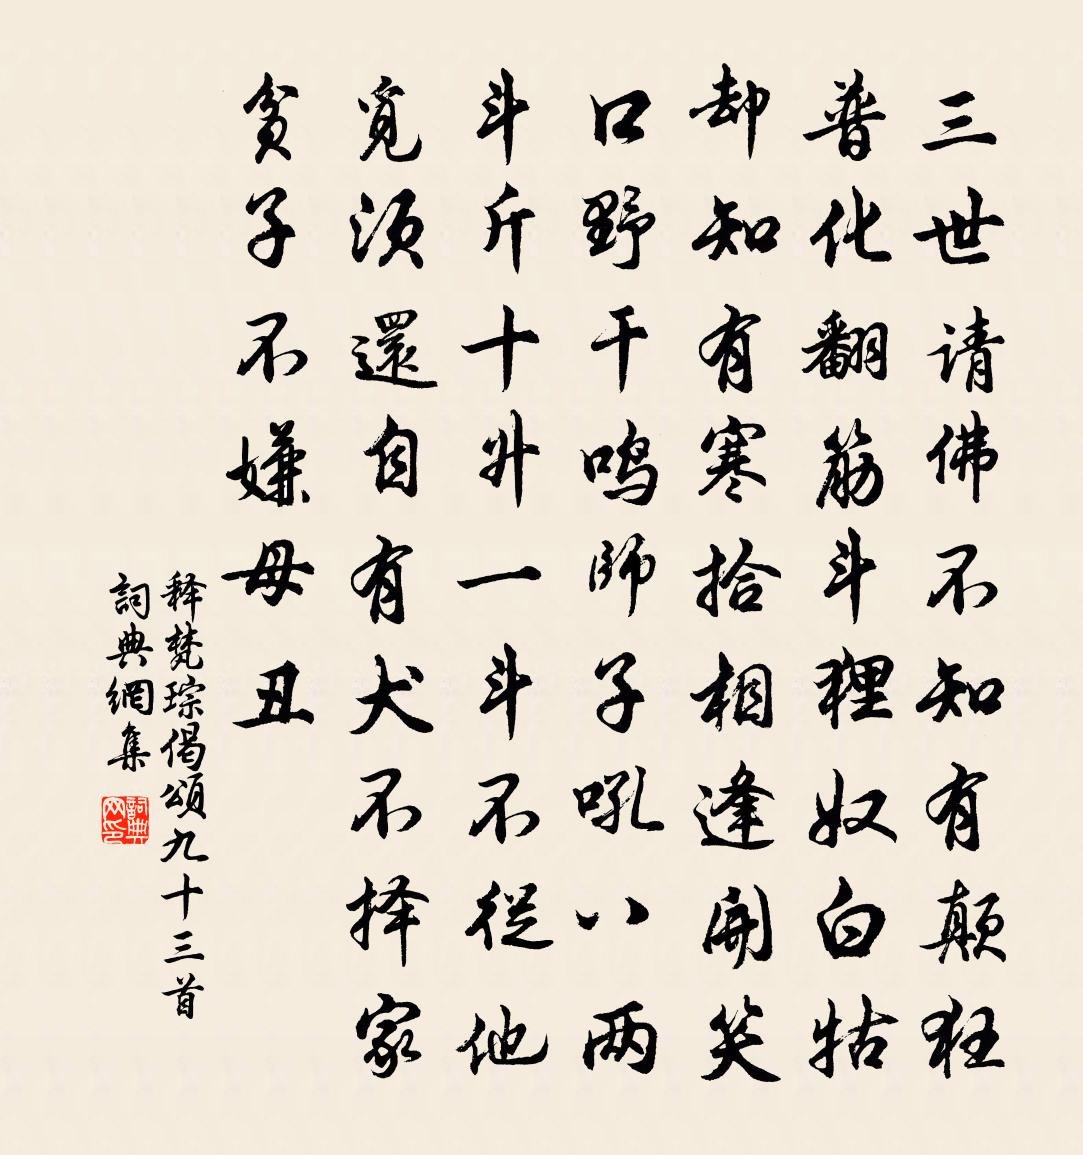 三世请佛不知有颠狂
普化翻筋斗狸奴白牯
却知有寒拾相逢開笑
口野干鸣师子吼八两
斗斤十升一斗不從他
覓须還自有犬不择家
贫子不嫌母丑
释梵琮偈頌九十三首
詞典網集
詞典网印